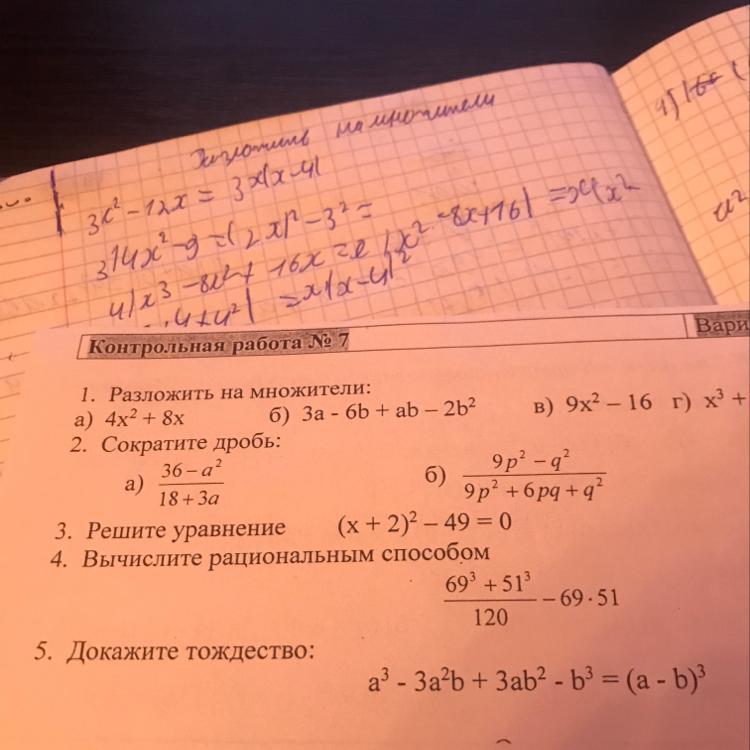 Разложить на множители
3x² - 12x = 3x(x-4)
3) 4x² - 9 = (2x)² - 3² =
4) x³ - 8x² + 16x = x(x² - 8x + 16) = x(x²
= x(x-4)²
4) 16
a²
Контрольная работа № 7 Вари
1. Разложить на множители:
а) 4x² + 8x б) 3a - 6b + ab – 2b² в) 9x² – 16 г) x³ +
2. Сократите дробь:
а) \frac{36 – a²}{18 + 3a} б) \frac{9p² – q²}{9p² + 6pq + q²}
3. Решите уравнение (x + 2)² – 49 = 0
4. Вычислите рациональным способом
\frac{69³ + 51³}{120} – 69 · 51
5. Докажите тождество:
a³ - 3a²b + 3ab² - b³ = (a - b)³